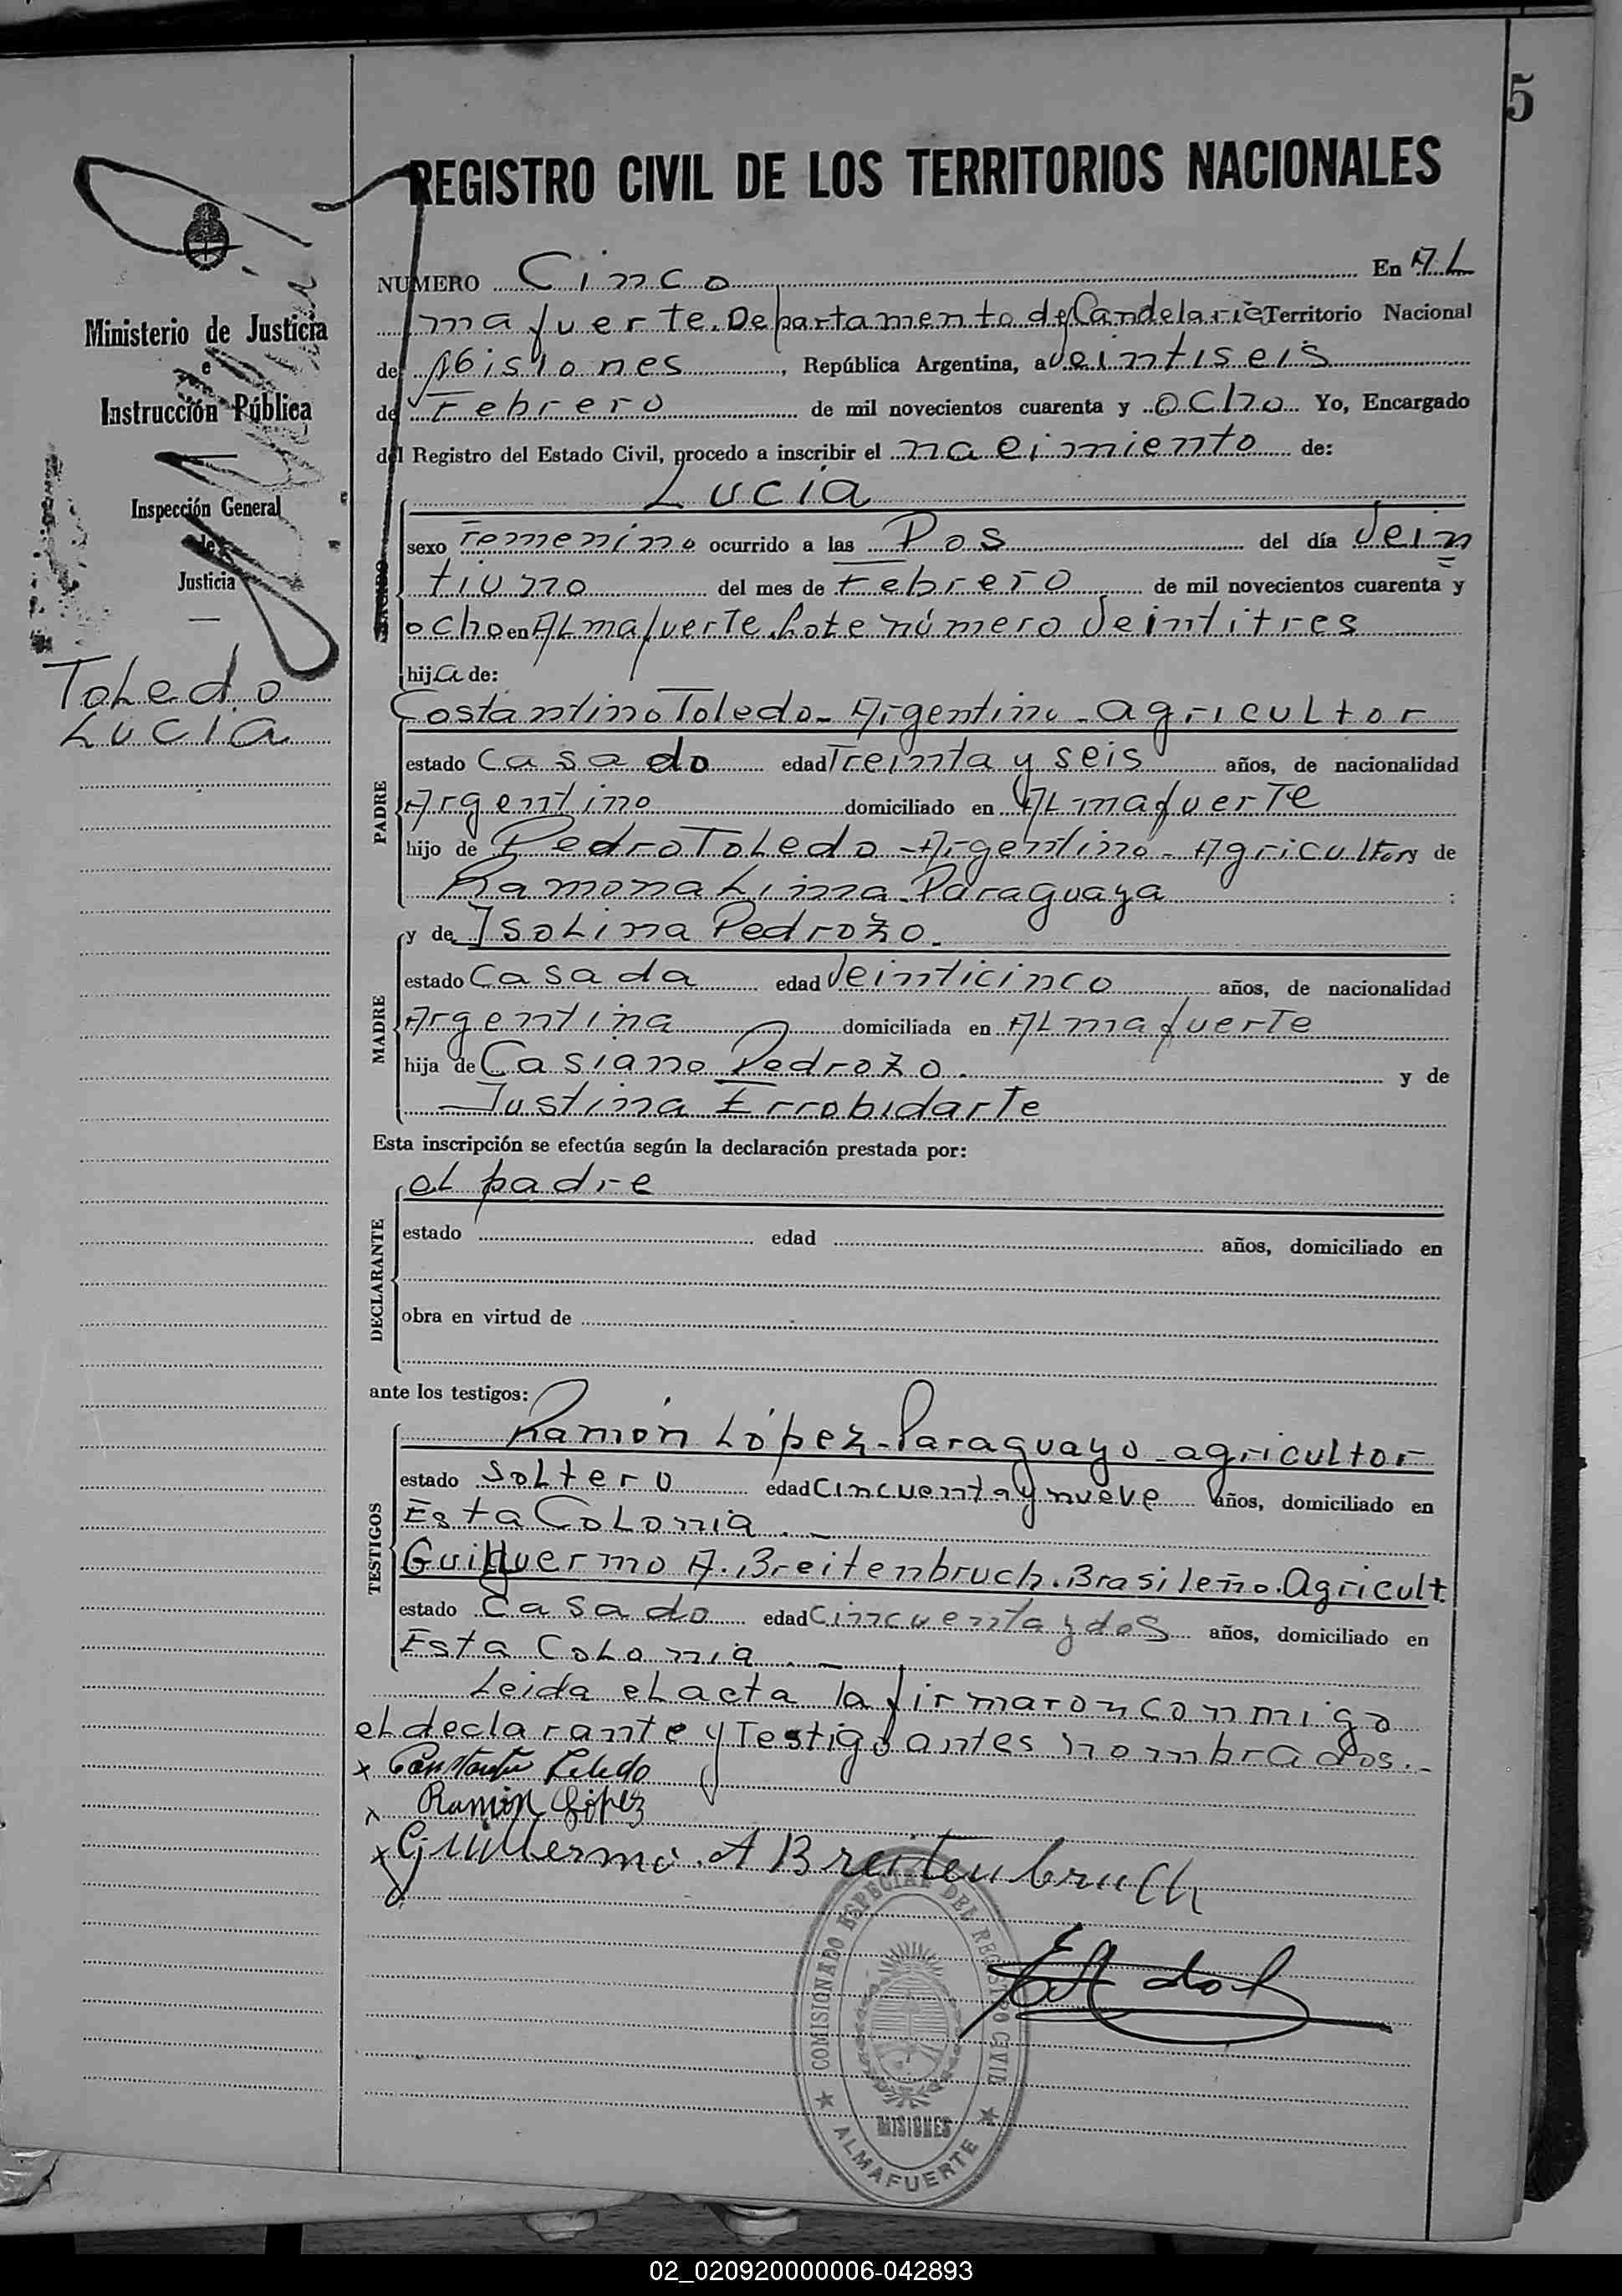 5
REGISTRO CIVIL DE LOS TERRITORIOS NACIONALES
Ministerio de Justicia
e
Instrucción Pública
Inspección General
de
Justicia
Toledo
Lucia
NUMERO Cinco En Al
mafuerte. Departamento de Candelaria Territorio Nacional
de Misiones, República Argentina, a veintiseis
de Febrero de mil novecientos cuarenta y ocho Yo, Encargado
del Registro del Estado Civil, procedo a inscribir el naeimiento de:
Lucía
sexo Femenino ocurrido a las Dos del día Vein
tiuno del mes de Febrero de mil novecientos cuarenta y
ocho en Almafuerte. Lote número Veintitres
hija de:
PADRE
Costantino Toledo - Argentino - agricultor
estado Casado edad Treinta y seis años, de nacionalidad
Argentino domiciliado en Almafuerte
hijo de Pedro Toledo - Argentino - Agricultor y de
Ramona Lima - Paraguaya
MADRE
y de Isolina Pedrozo.
estado Casada edad Veinticinco años, de nacionalidad
Argentina domiciliada en Almafuerte
hija de Casiano Pedrozo. y de
Justina Errobidarte
Esta inscripción se efectúa según la declaración prestada por:
DECLARANTE
el padre
estado edad años, domiciliado en
obra en virtud de
ante los testigos:
TESTIGOS
Ramón López - Paraguayo - agricultor
estado Soltero edad Cincuenta y nueve años, domiciliado en
Esta Colonia. -
Guillermo A. Breitenbruch. Brasileño. Agricult.
estado Casado edad Cincuenta y dos años, domiciliado en
Esta Colonia. -
Leida el acta la firmaron conmigo
el declarante y Testigo antes nombrados. -
x Toledo
x Ramón López
x Guillermo. A Breitenbruch
COMISIONADO ESPECIAL DEL REGISTRO CIVIL
MISIONES
ALMAFUERTE
02_020920000006-042893